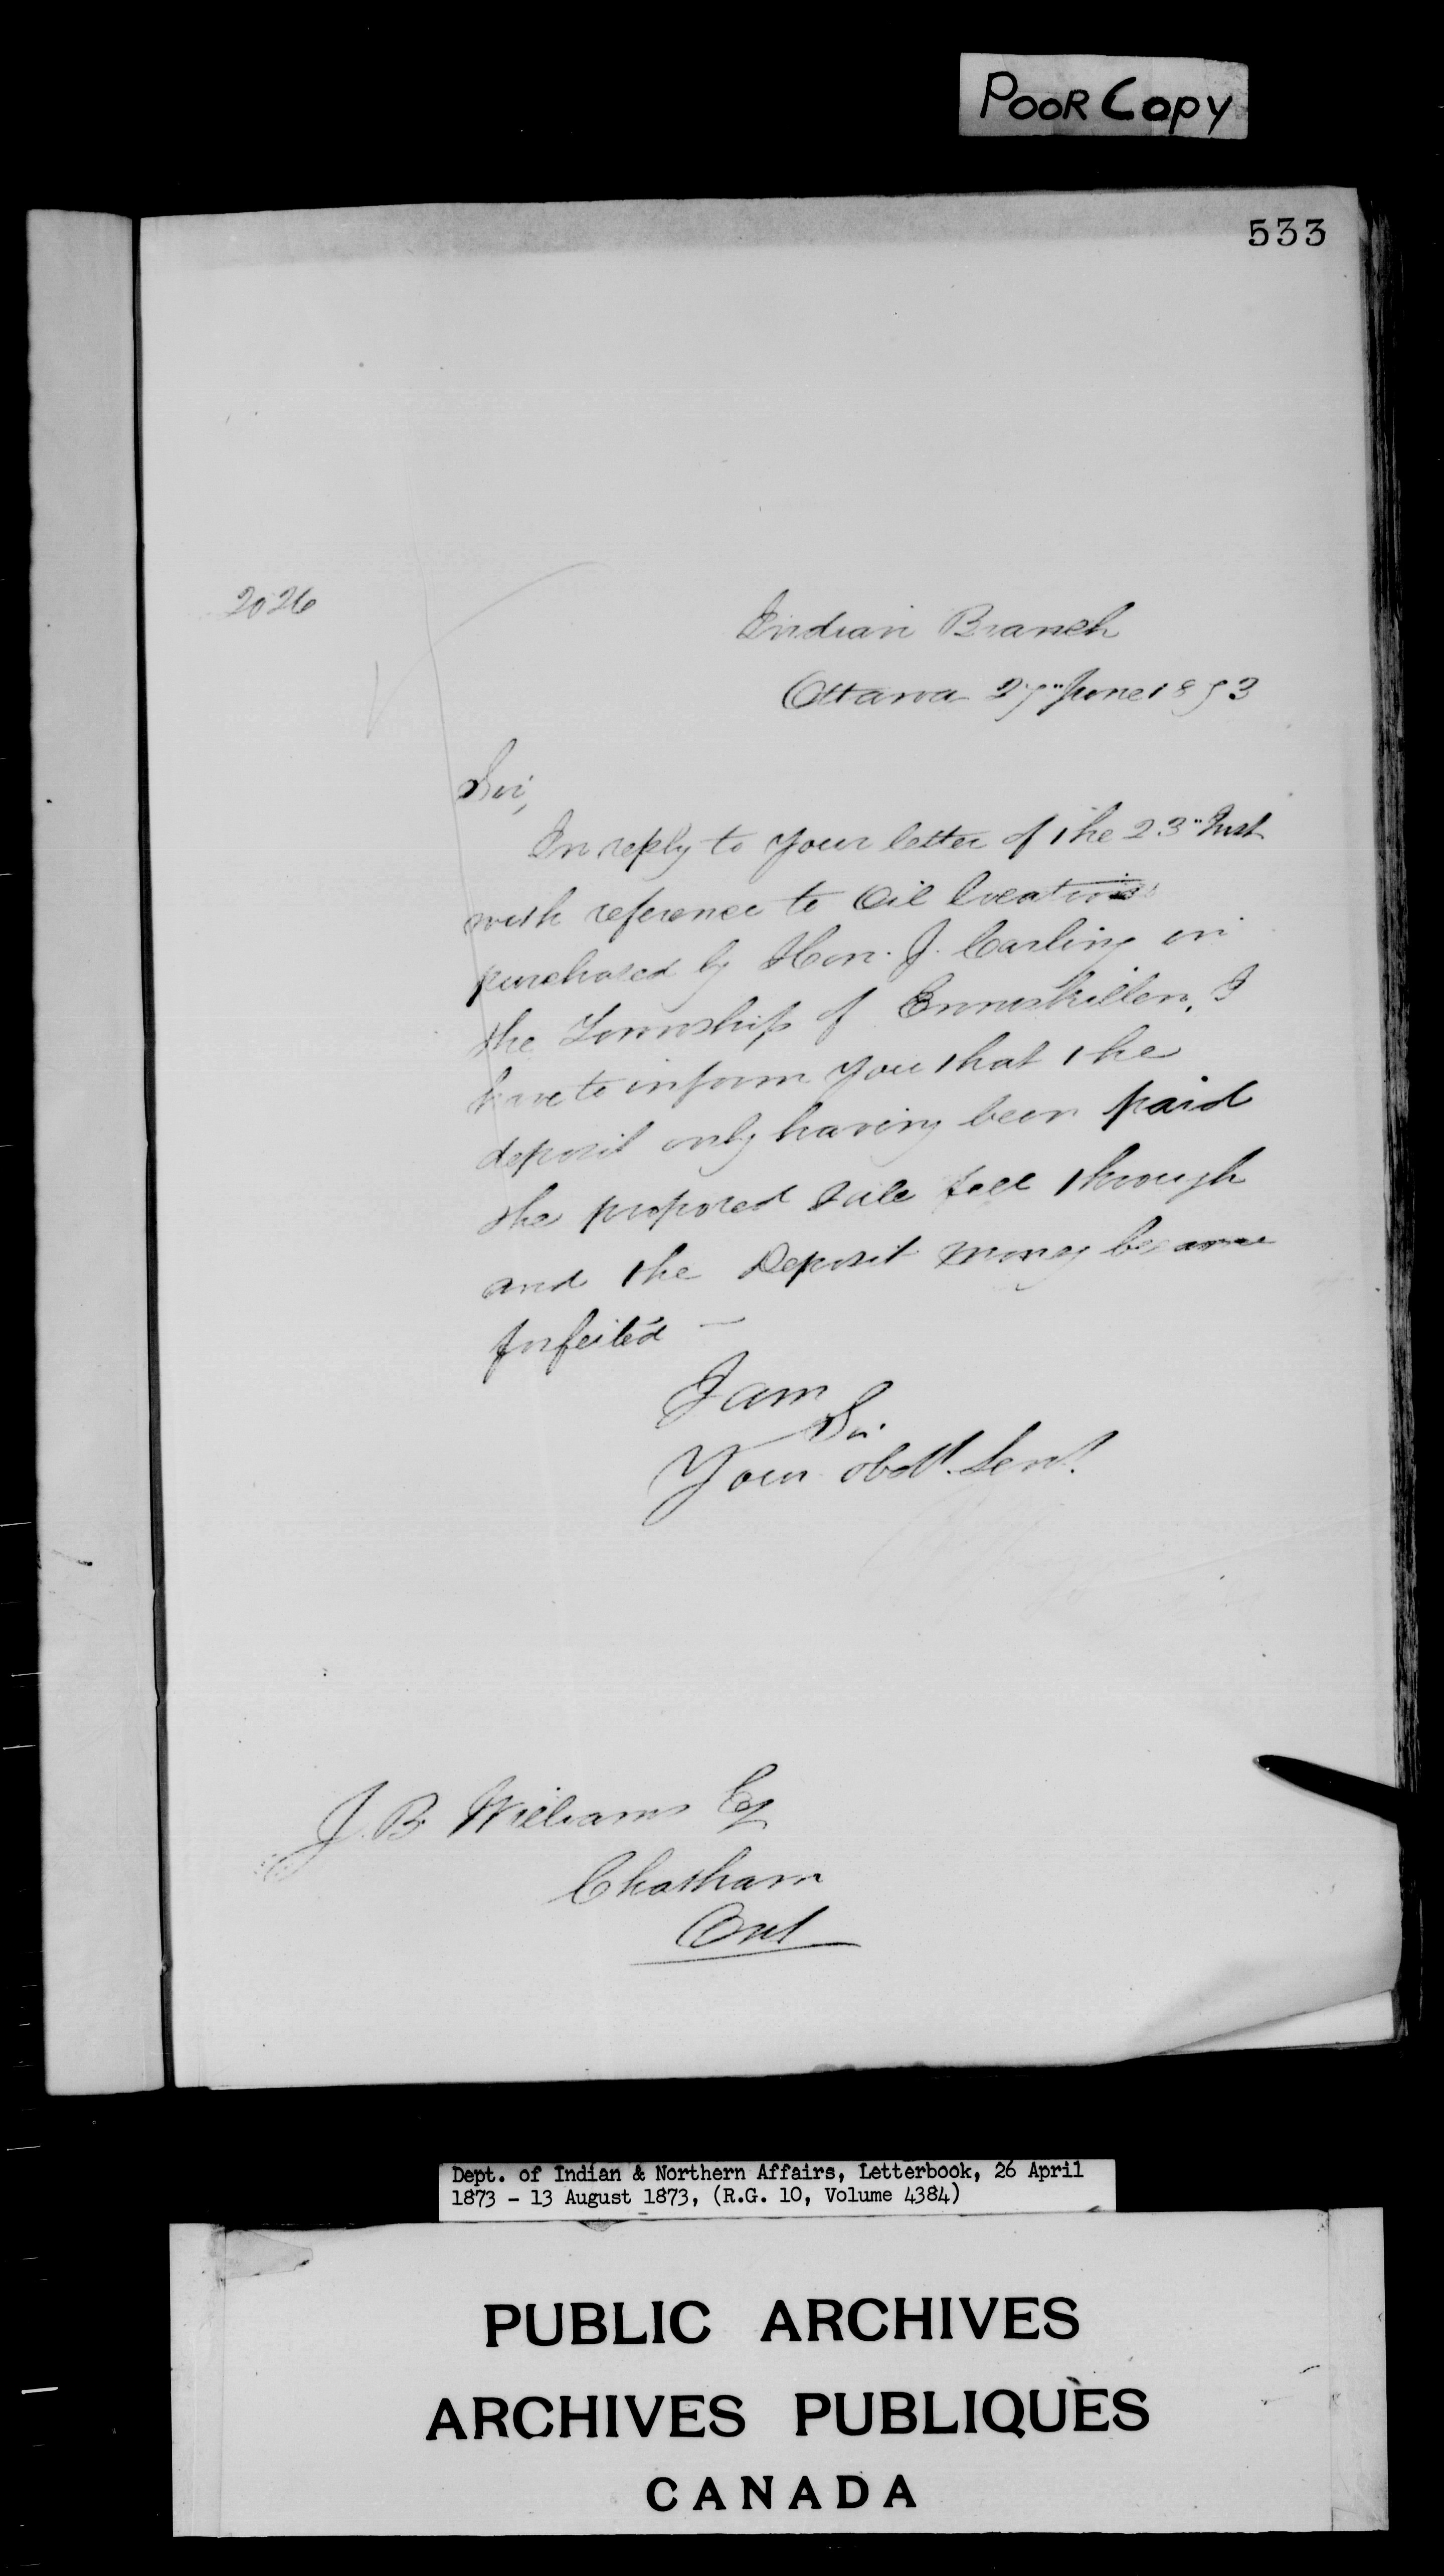 POOR COPY
533
2026
Indian Branch
Ottawa 27" June 1873
Sir,
In reply to your letter of the 23" Inst
with reference to Oil locations
purchased by Hon. J. Carling in
the Township of Enniskillen, I
have to inform you that the
deposit only having been paid
the proposed sale fell through
and the Deposit money became
forfeited —
I am
Sir
Your obdt. Servt.
J. B Williams Esq
Chatham
Ont
Dept. of Indian & Northern Affairs, Letterbook, 26 April
1873 - 13 August 1873, (R.G. 10, Volume 4384)
PUBLIC ARCHIVES
ARCHIVES PUBLIQUES
CANADA